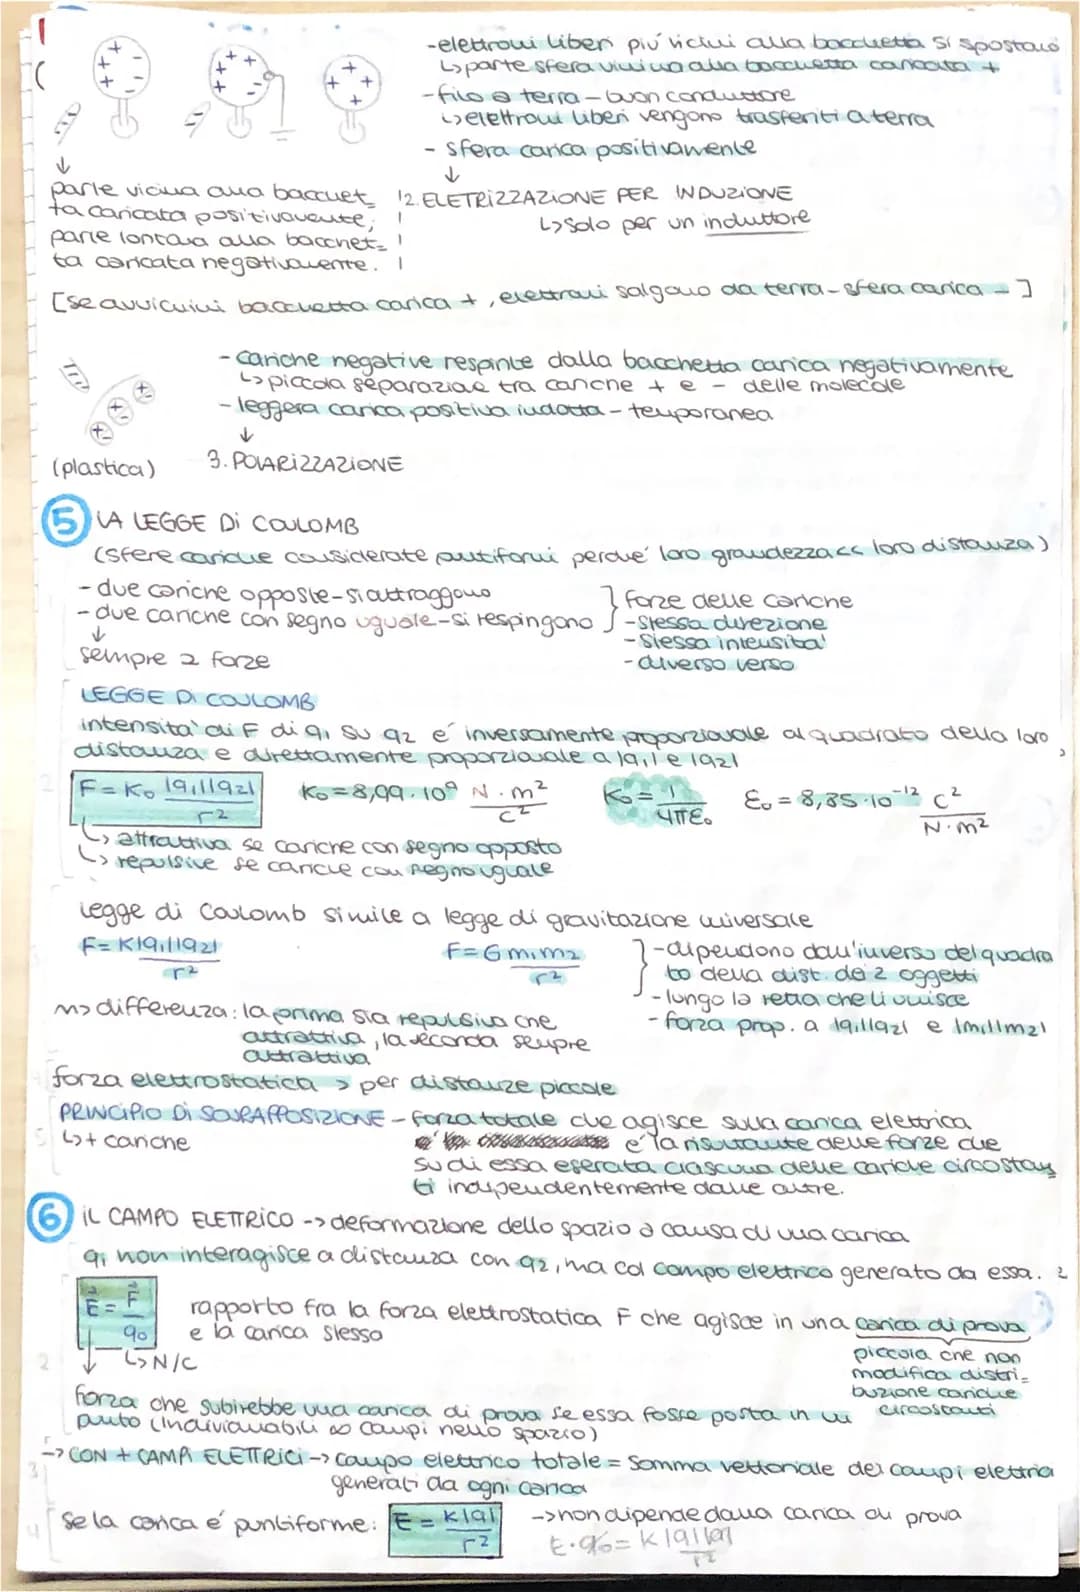 -elettroni liberi più vicini alla bacchetta si spostano
↳parte sfera vicina alla bacchetta caricata +
-filo a terra - buon conduttore
↳elettroni liberi vengono trasferiti a terra
- sfera carica positivamente
↓
parte vicina alla bacchet_
ta caricata positivamente;
parte lontana alla bacchet=
ta caricata negativamente.
2. ELETRIZZAZIONE PER INDUZIONE
↳Solo per un induttore
[se avvicini bacchetta carica +, elettroni salgono da terra - sfera carica - ]
- cariche negative respinte dalla bacchetta carica negativamente
↳piccola separazione tra cariche + e - delle molecole
- leggera carica positiva indotta - temporanea
↓
(plastica)
3. POLARIZZAZIONE
5 LA LEGGE DI COULOMB
(sfere cariche considerate puntiformi perché loro grandezza << loro distanza)
- due cariche opposte - si attraggono
- due cariche con segno uguale - si respingono
↓
sempre 2 forze
} forze delle cariche
- stessa direzione
- stessa intensità
- diverso verso
LEGGE DI COULOMB
intensità di F di q1 su q2 é inversamente proporzionale al quadrato della loro
distanza e direttamente proporzionale a |q1| e |q2|
F = K₀ |q1||q2| / r²
K₀ = 8,99 · 10⁹ N · m² / C²
K₀ = 1 / 4πε₀
ε₀ = 8,85 · 10⁻¹² C² / N · m²
↳ attrattiva se cariche con segno opposto
↳ repulsive se cariche con segno uguale
legge di Coulomb simile a legge di gravitazione universale
F = K|q1||q2| / r²
F = G m1 m2 / r²
} - dipendono dall'inverso del quadra
to della dist. dei 2 oggetti
- lungo la retta che li unisce
- forza prop. a |q1||q2| e |m1||m2|
differenza: la prima sia repulsiva che
attrattiva, la seconda sempre
attrattiva
forza elettrostatica > per distanze piccole
PRINCIPIO DI SOVRAPPOSIZIONE - forza totale che agisce sulla carica elettrica
↳+ cariche
é la risultante delle forze che
su di essa esercita ciascuna delle cariche circostan
ti indipendentemente dalle altre.
6 IL CAMPO ELETTRICO -> deformazione dello spazio a causa di una carica
q1 non interagisce a distanza con q2, ma col campo elettrico generato da essa.
E = F / q0
↳ N/C
rapporto fra la forza elettrostatica F che agisce in una carica di prova
e la carica stessa
piccola che non
modifica distri=
buzione cariche
circostanti
↓
forza che subirebbe una carica di prova se essa fosse posta in un
punto (individuabili ∞ campi nello spazio)
-> CON + CAMPI ELETTRICI -> campo elettrico totale = somma vettoriale dei campi elettrici
generati da ogni carica
se la carica é puntiforme: E = K|q| / r²
-> non dipende dalla carica di prova